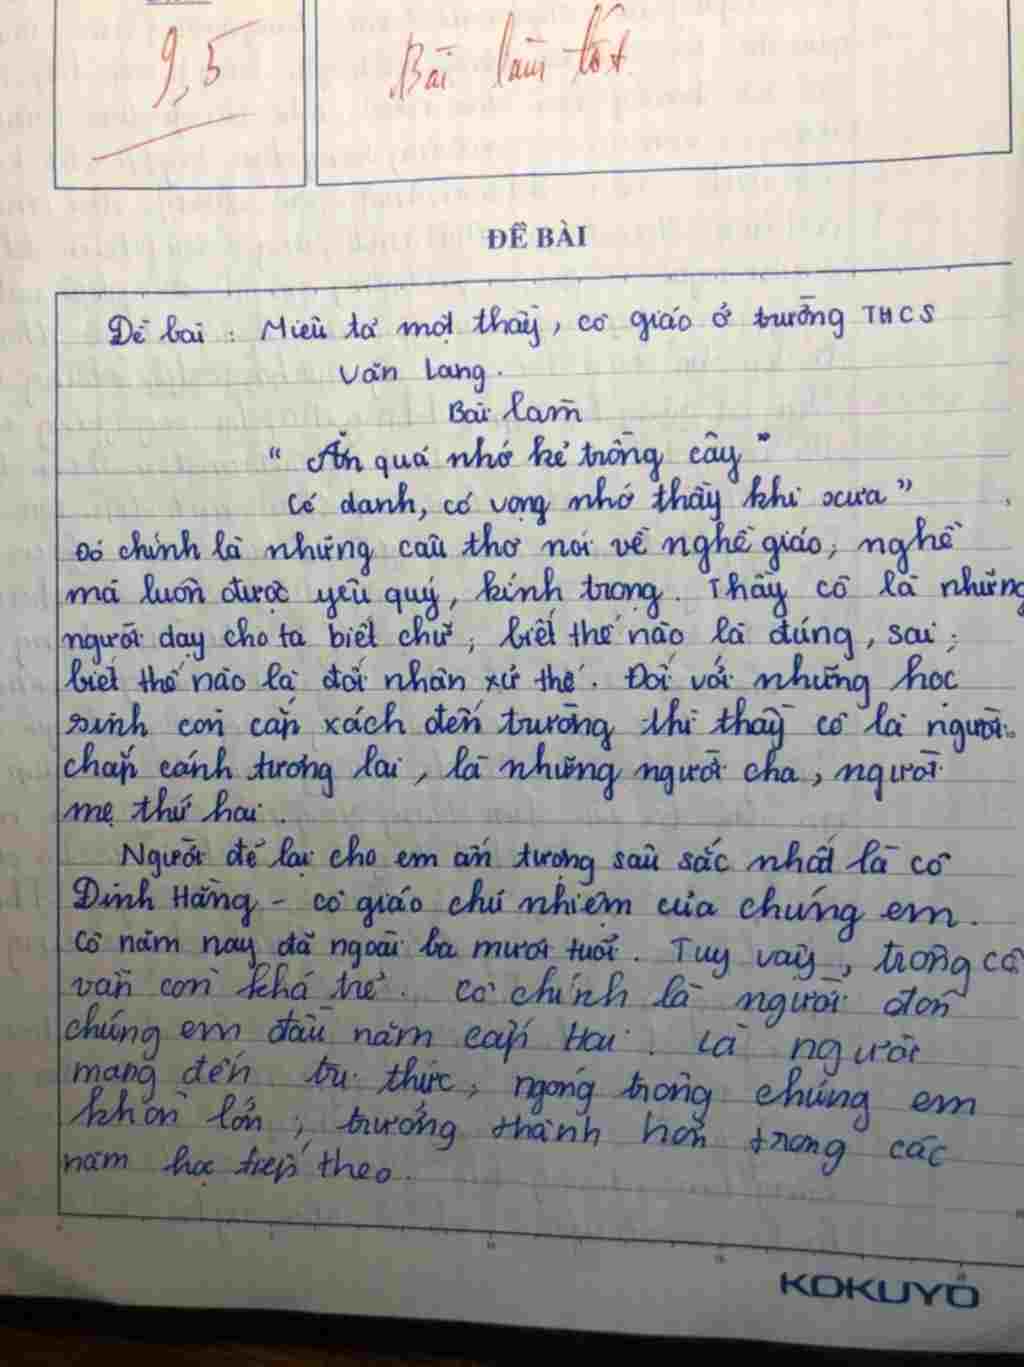 9,5
Bài làm tốt
ĐỀ BÀI
Đề bài : Miêu tả một thầy, cô giáo ở trường THCS
Văn Lang.
Bài làm
“ Ăn quả nhớ kẻ trồng cây ”
Có danh, có vọng nhớ thầy khi xưa ”
Đó chính là những câu thơ nói về nghề giáo, nghề
mà luôn được yêu quý, kính trọng. Thầy cô là những
người dạy cho ta biết chữ, biết thế nào là đúng, sai,
biết thế nào là đối nhân xử thế. Đối với những học
sinh còn cắp xách đến trường thì thầy cô là người
chắp cánh tương lai, là những người cha, người
mẹ thứ hai.
Người để lại cho em ấn tượng sâu sắc nhất là cô
Đinh Hằng - cô giáo chủ nhiệm của chúng em.
Cô năm nay đã ngoài ba mươi tuổi. Tuy vậy, trông cô
vẫn còn khá trẻ. Cô chính là người đón
chúng em đầu năm cấp Hai. Là người
mang đến tri thức, ngóng trông chúng em
khôn lớn, trưởng thành hơn trong các
năm học tiếp theo.
KOKUYO